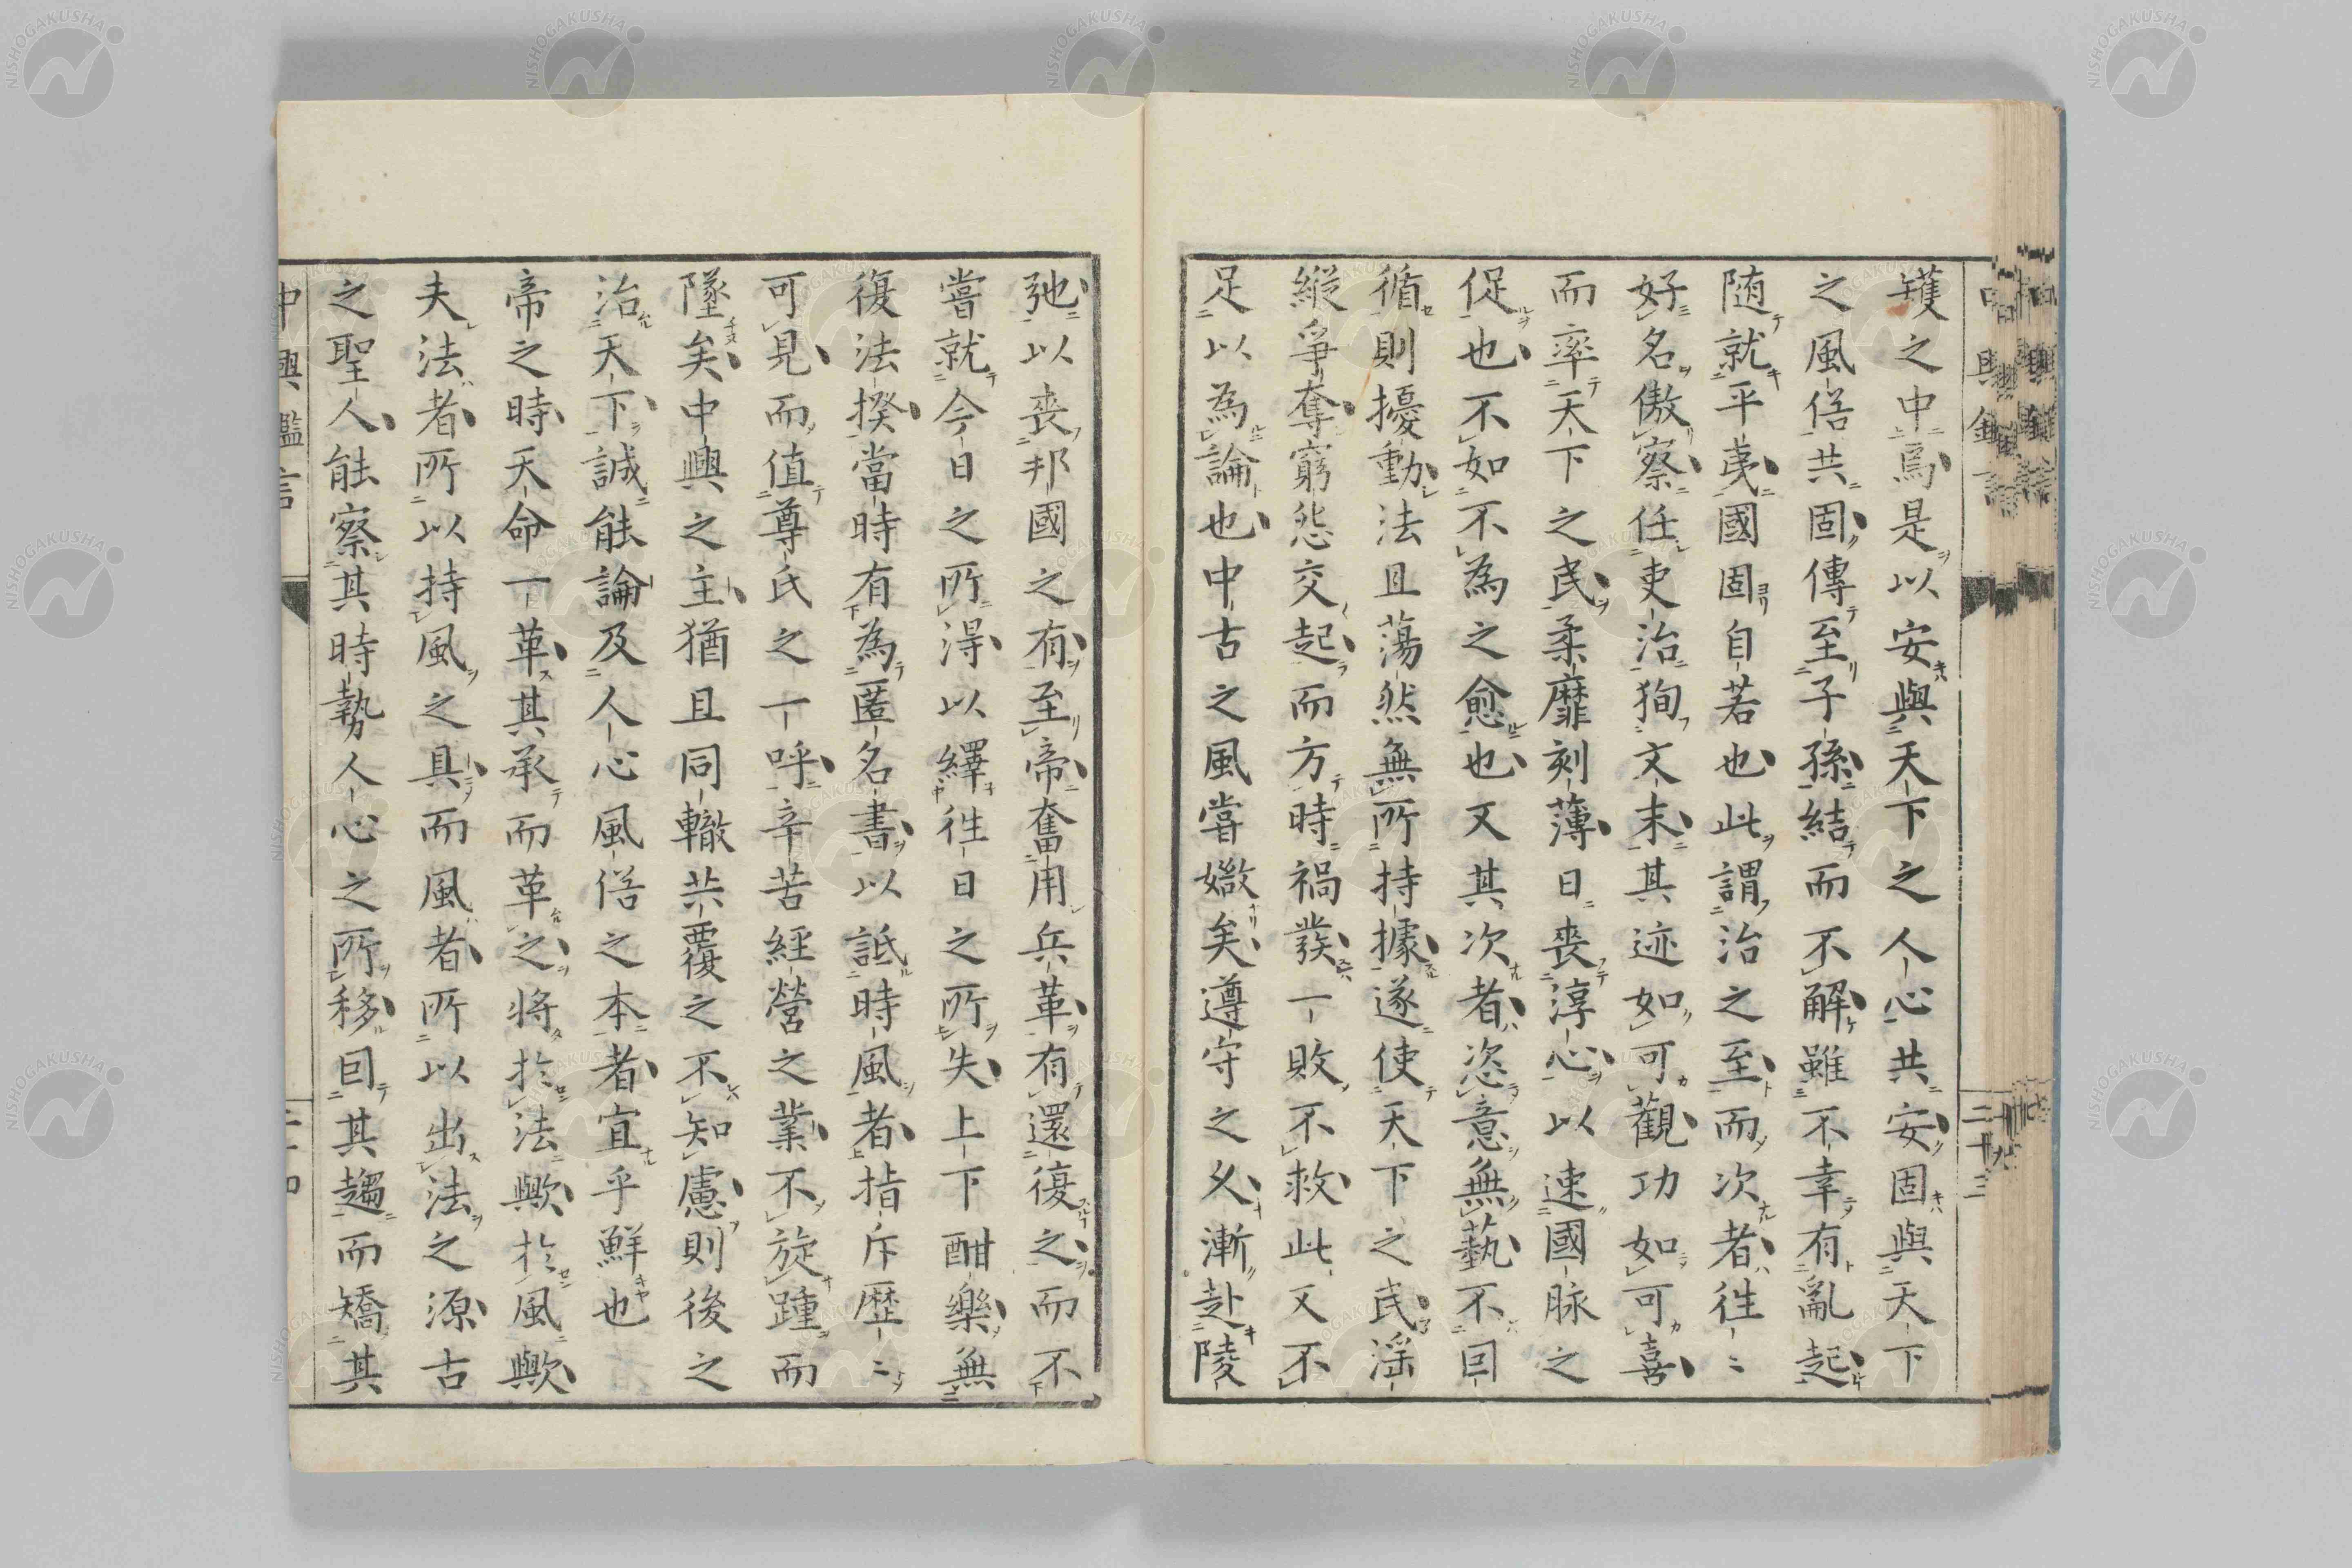 矱之中焉是以安與天下之人心共安固與天下
之風俗共固傳至子孫結而不解雖不幸有亂起
随就平夷國固自若也此謂治之至而次者徃〻
好名傲察任吏治狥文末其迹如可觀功如可喜
而率天下之民柔靡刻薄日喪淳心以速國脉之
促也不如不為之愈也又其次者恣意無藝不回
循則擾動法且蕩然無所持據遂使天下之民滛
縱爭奪窮怨交起而方時禍發一敗不救此又不
足以為論也中古之風嘗媺矣遵守之乆漸赴陵
弛以喪邦國之有至帝奮用兵革有還復之而不
嘗就今日之所淂以繹徃日之所失上下酣樂無
復法揆當時有為匿名書以詆時風者指斥歴〻
可見而值尊氏之一呼辛苦經營之業不旋踵而
墜矣中興之主猶且同轍共覆之不知慮則後之
治天下誠能論及人心風俗之本者宜乎鮮也
帝之時天命一革其承而革之将於法歟於風歟
夫法者所以持風之具而風者所以出法之源古
之聖人能察其時勢人心之所移因其趨而矯其
中興鑑言
NISHOGAKUSHA